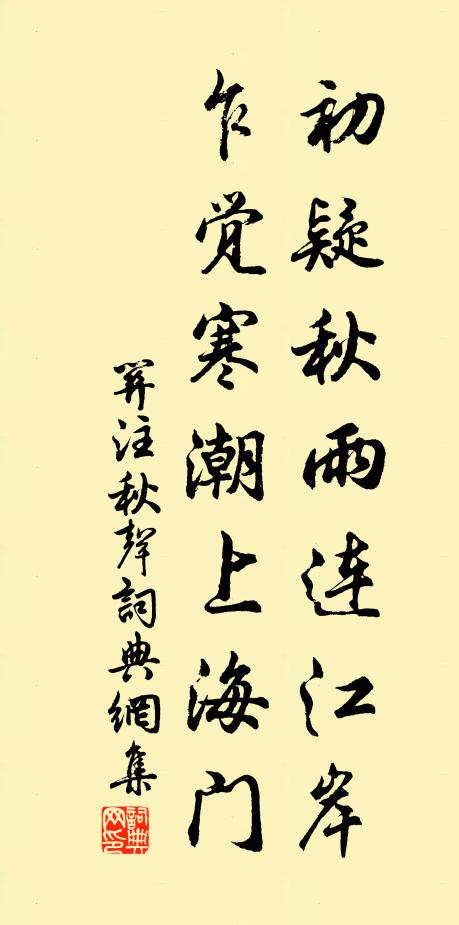 初疑秋雨连江岸
乍觉寒潮上海门
注秋聲詞典網集
詞典网印